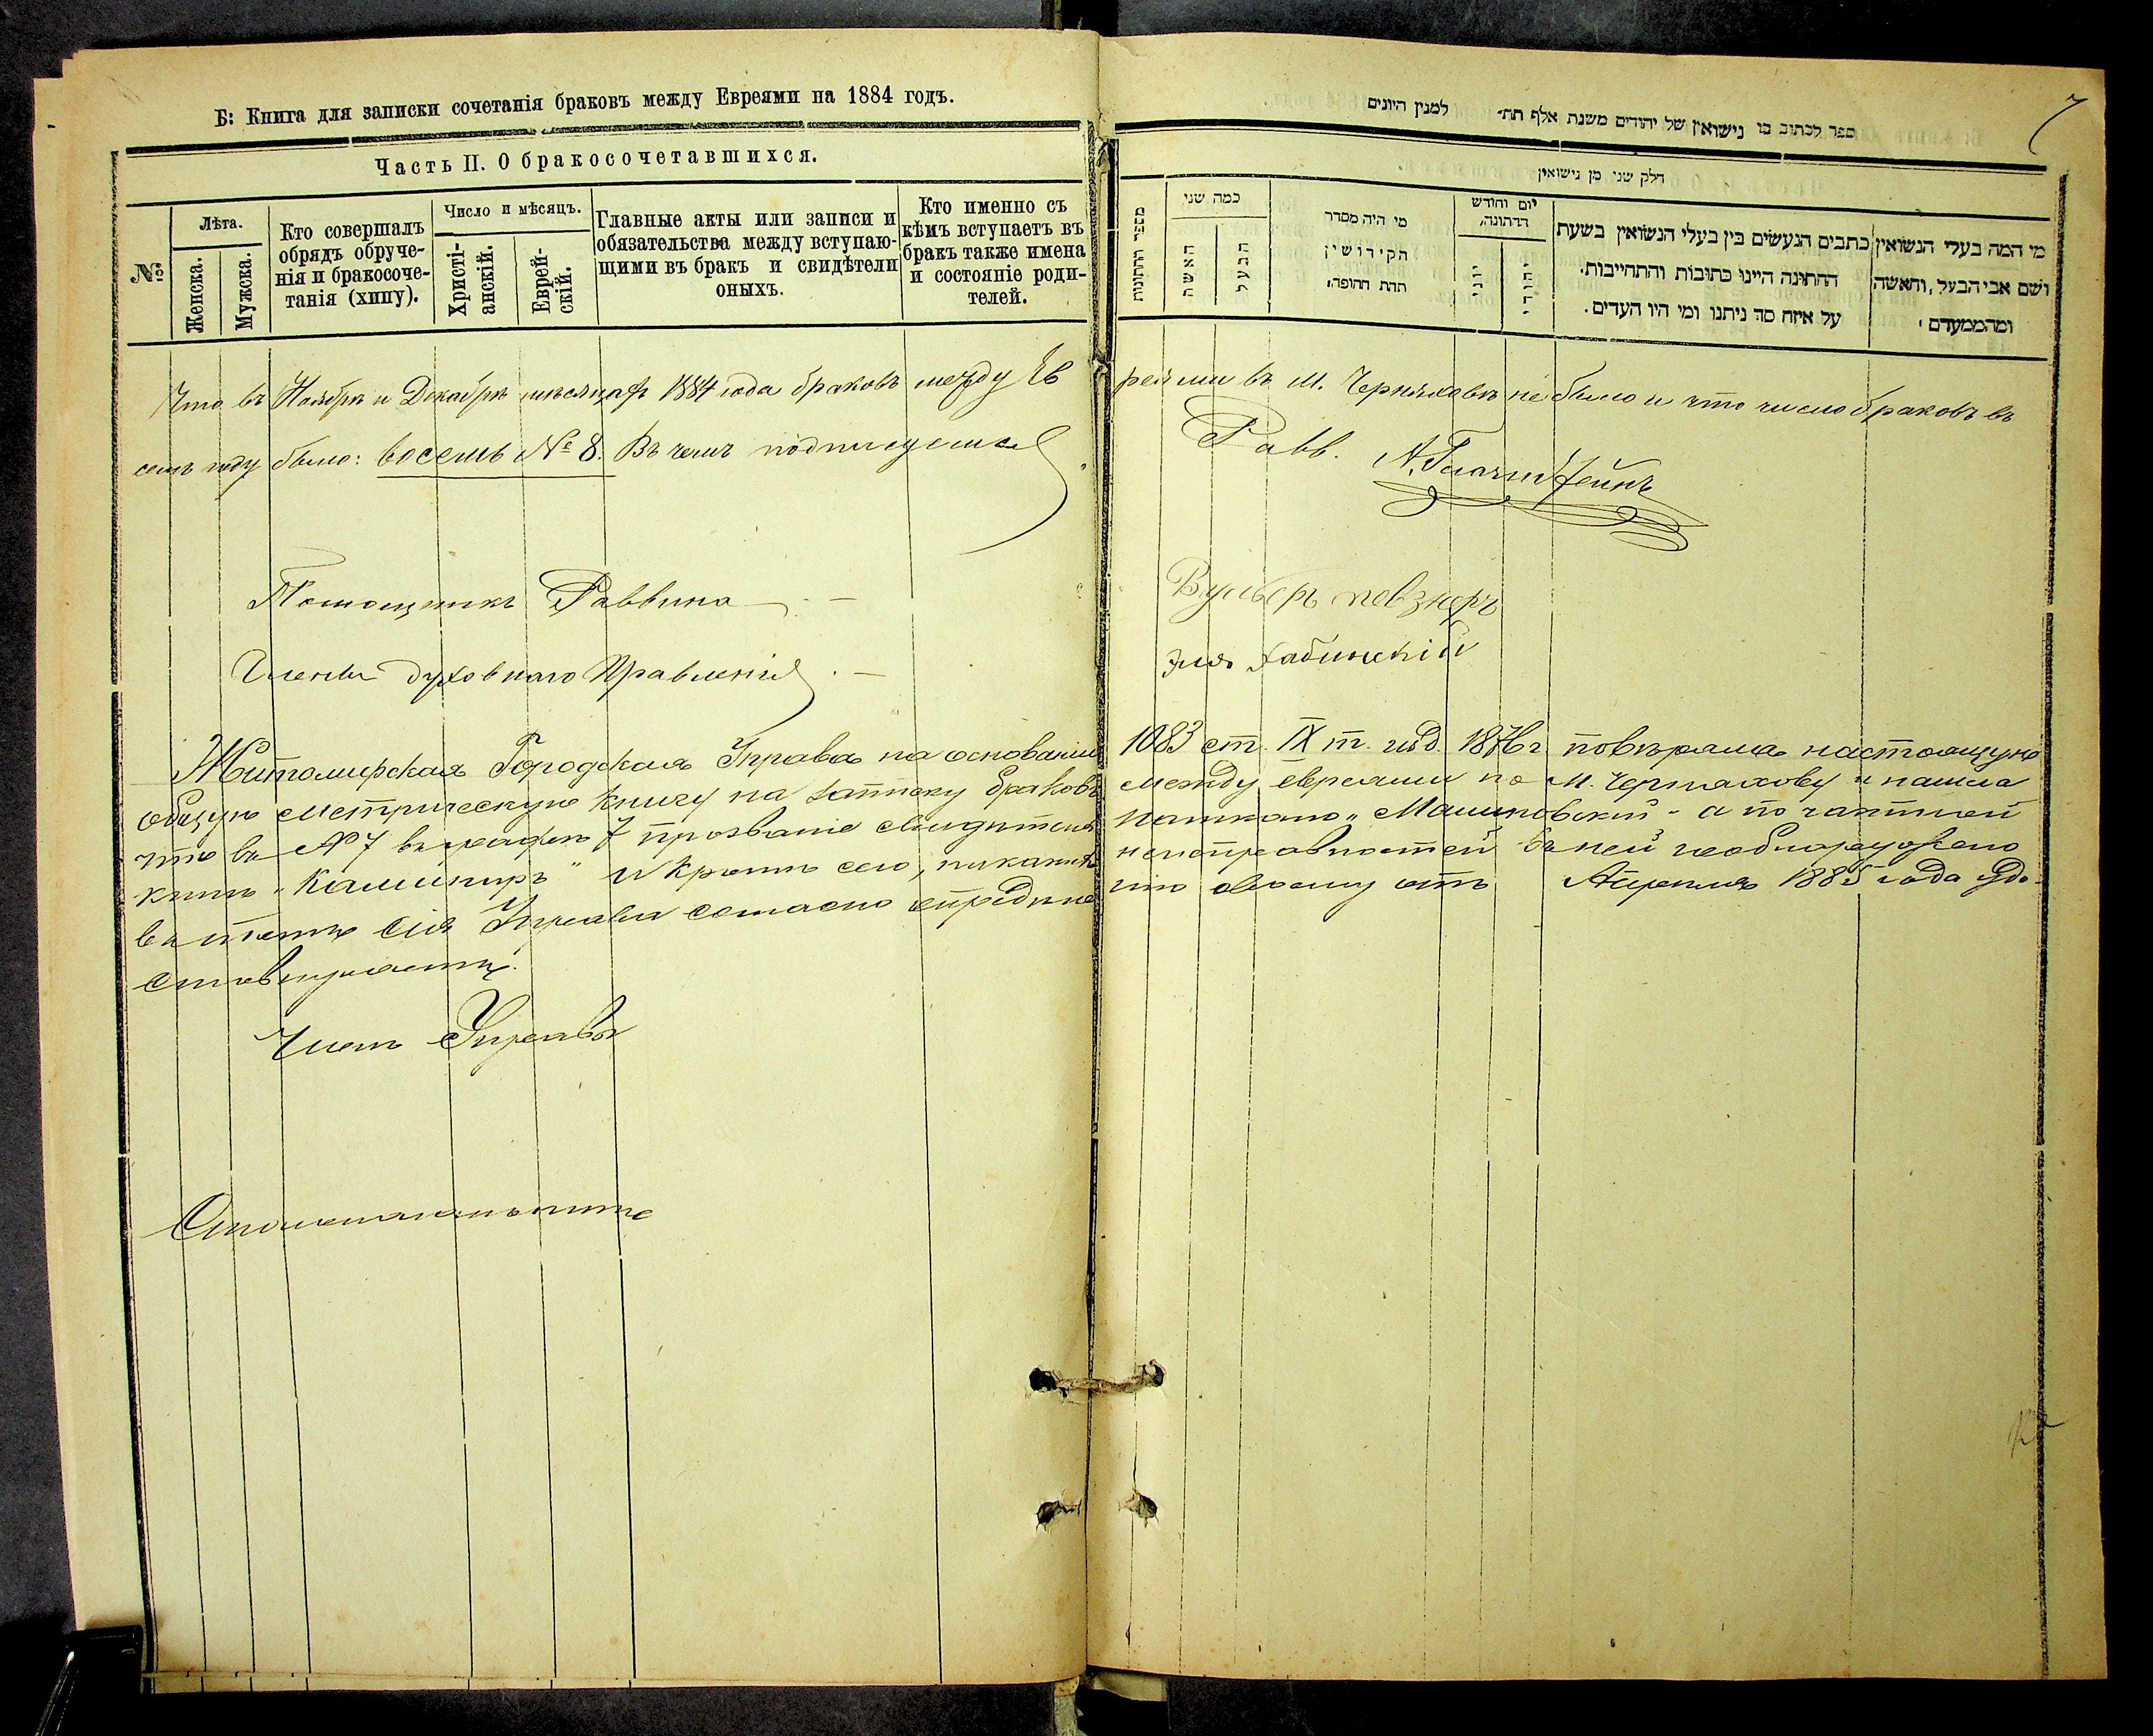 Б: Книга для записки сочетанія браковъ между Евреями на 1884 годъ.
Часть II. О бракосочетавшихся.
№
Лѣта.
Женска.
Мужска.
Кто совершалъ
обрядъ обруче-
нія и бракосоче-
танія (хипу).
Число и мѣсяцъ.
Христі-
анскій.
Еврей-
скій.
Главные акты или записи и
обязательства между вступаю-
щими въ бракъ и свидѣтели
оныхъ.
Кто именно съ
кѣмъ вступаетъ въ
бракъ также имена
и состояніе роди-
телей.
7
ספר לכתוב בו נישואין של יהודים משנת אלף תת- למנין היונים
חלק שני מן נישואין
מספר החתונות
כמה שני
האשה
הבעל
מי היה מסדר
הקידושין
תחת החופה,
יום וחודש
החתונה,
יוני
יהודי
כתבים הנעשים בין בעלי הנשואין בשעת
החתונה היינו כתובות והתחייבות.
על איזה סך ניתנו ומי היו העדים.
מי המה בעלי הנשואין
ושם אבי הבעל, והאשה
ומהממעדם,
Что въ Ноябрѣ и Декабрѣ мѣсяцахъ 1884 года браковъ между Ев
реями въ М. Черняховѣ не было и что число браковъ въ
семъ году было: восемь № 8. Въ чемъ подписуемся
Равв.
Помощникъ Раввина
Вульферъ Певзнеръ
Члены духовнаго Правленія
Житомирская Городская Управа на основаніи 1083 ст. IX т. изд. 1876 г. повѣряла настоящую
общую метрическую книгу на записку браковъ между евреями по М. Черняхову и нашла
что въ № 7 въ графѣ 7 прозваніе свидѣтеля
"Малиновскій" а по частной
книгѣ "Калиниръ" и кромѣ сего, никакихъ неисправностей въ ней необнаружено
въ чемъ сія Управа согласно опредѣле
нію своему отъ Апреля 1885 года удо-
стовѣряетъ.
Членъ Управы